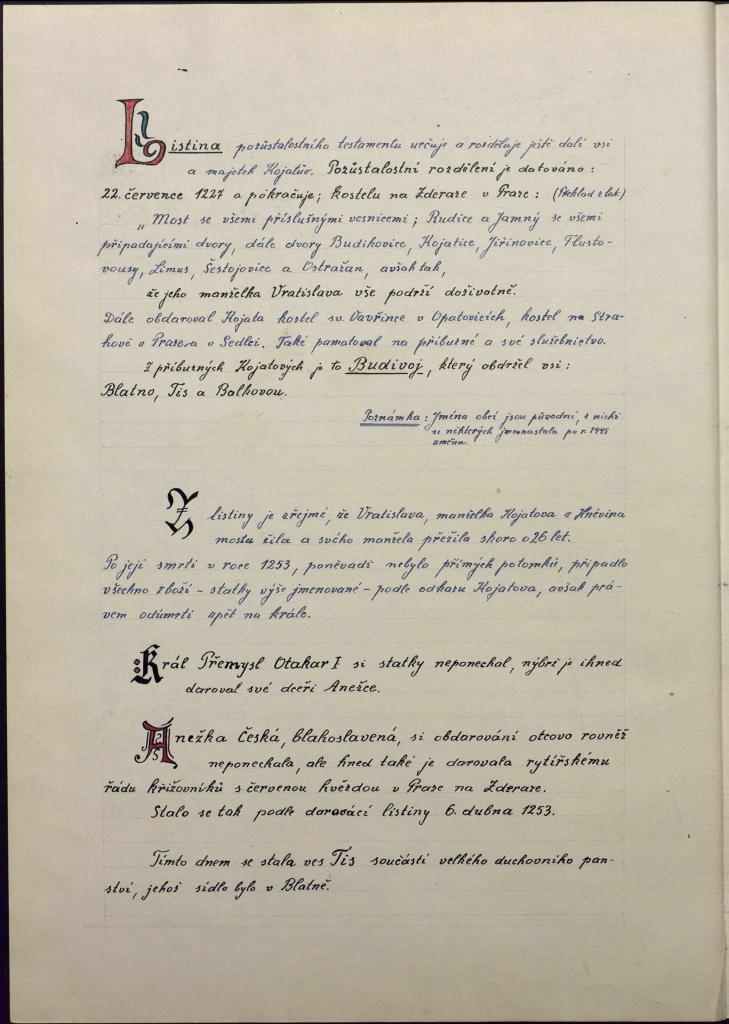 Listina pozůstalostního testamentu určuje a rozděluje ještě dalí vsi
a majetek Kojatův. Pozůstalostní rozdělení je datováno:
22. července 1227 a pokračuje; kostelu na Zderaze v Praze: (Překlad z lat.)
„Most se všemi příslušnými vesnicemi; Rudice a Jamný se všemi
připadajícími dvory, dále dvory Budihovice, Kojatice, Jiřinovice, Tlusto-
vousy, Limus, Šestojovice a Ostražan, avšak tak,
že jeho manželka Vratislava vše podrží doživotně.
Dále obdaroval Kojata kostel sv. Vavřince v Opatovicích, kostel na Stra-
hově v Praze a v Sedlci. Také pamatoval na příbuzné a své služebnictvo.
Z příbuzných Kojatových je to Budivoj, který obdržel vsi:
Blatno, Tis a Balkovou.
Poznámka: Jména obcí jsou původní, z nichž
u některých jmen nastala po r. 1945
změna.
Z listiny je zřejmé, že Vratislava, manželka Kojatova z Hněvína
mostu žila a svého manžela přežila skoro o 26 let.
Po její smrti v roce 1253, poněvadž nebylo přímých potomků, připadlo
všechno zboží - statky výše jmenované - podle odkazu Kojatova, avšak prá-
vem odúmrti zpět na krále.
Král Přemysl Otakar I si statky neponechal, nýbrž je ihned
daroval své dceři Anežce.
Anežka Česká, blahoslavená, si obdarování otcovo rovněž
neponechala, ale hned také je darovala rytířskému
řádu křižovníků s červenou hvězdou v Praze na Zderaze.
Stalo se tak podle darovací listiny 6. dubna 1253.
Tímto dnem se stala ves Tis součástí velkého duchovního pan-
ství, jehož sídlo bylo v Blatně.